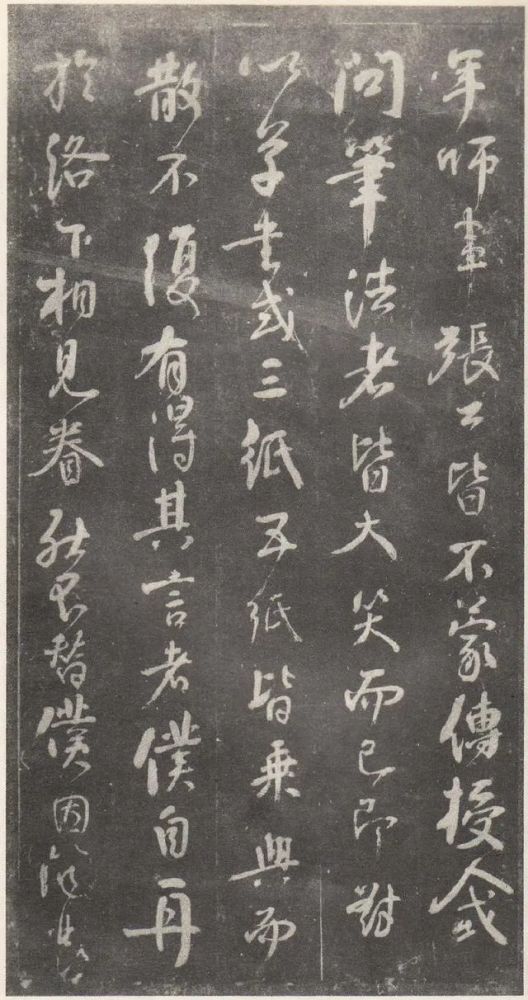 年師盡張公皆不蒙傳授人或
問筆法者皆大笑而已即對
以草書或三紙五紙皆乗興而
散不復有得其言者僕自再
於洛下相見眷然不替僕因